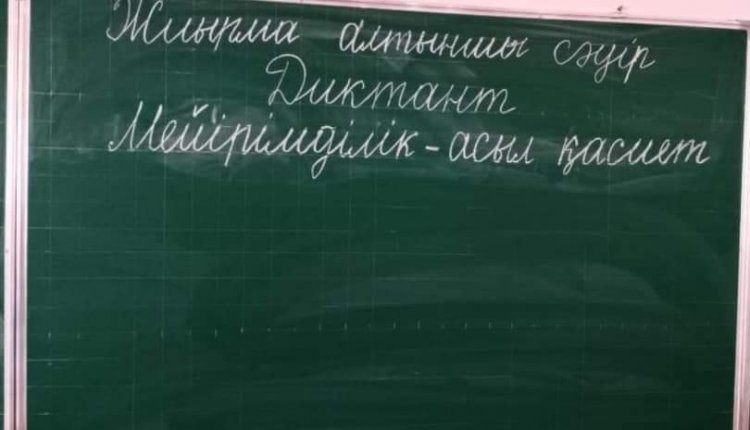 Жиырма алтыншы сәуір
Диктант
Мейірімділік - асыл қасиет